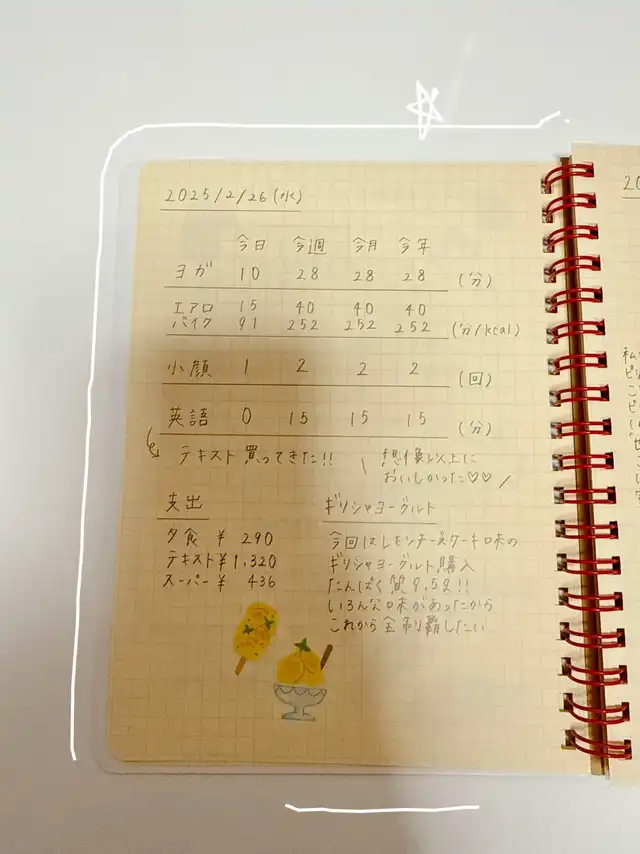 2025/2/26(水)
今日 今週 今月 今年
ヨガ 10 28 28 28 (分)
エアロ 15 40 40 40
バイク 91 252 252 252 (分/kcal)
小顔 1 2 2 2 (回)
英語 0 15 15 15 (分)
テキスト買ってきた!!
\ 想像以上に
おいしかった♡♡ /
支出
夕食 ¥ 290
テキスト ¥1,320
スーパー ¥ 436
ギリシャヨーグルト
今回はレモンチーズケーキ味の
ギリシャヨーグルト購入
たんぱく質9.5g!!
いろんな味があったから
これから全制覇したい
20